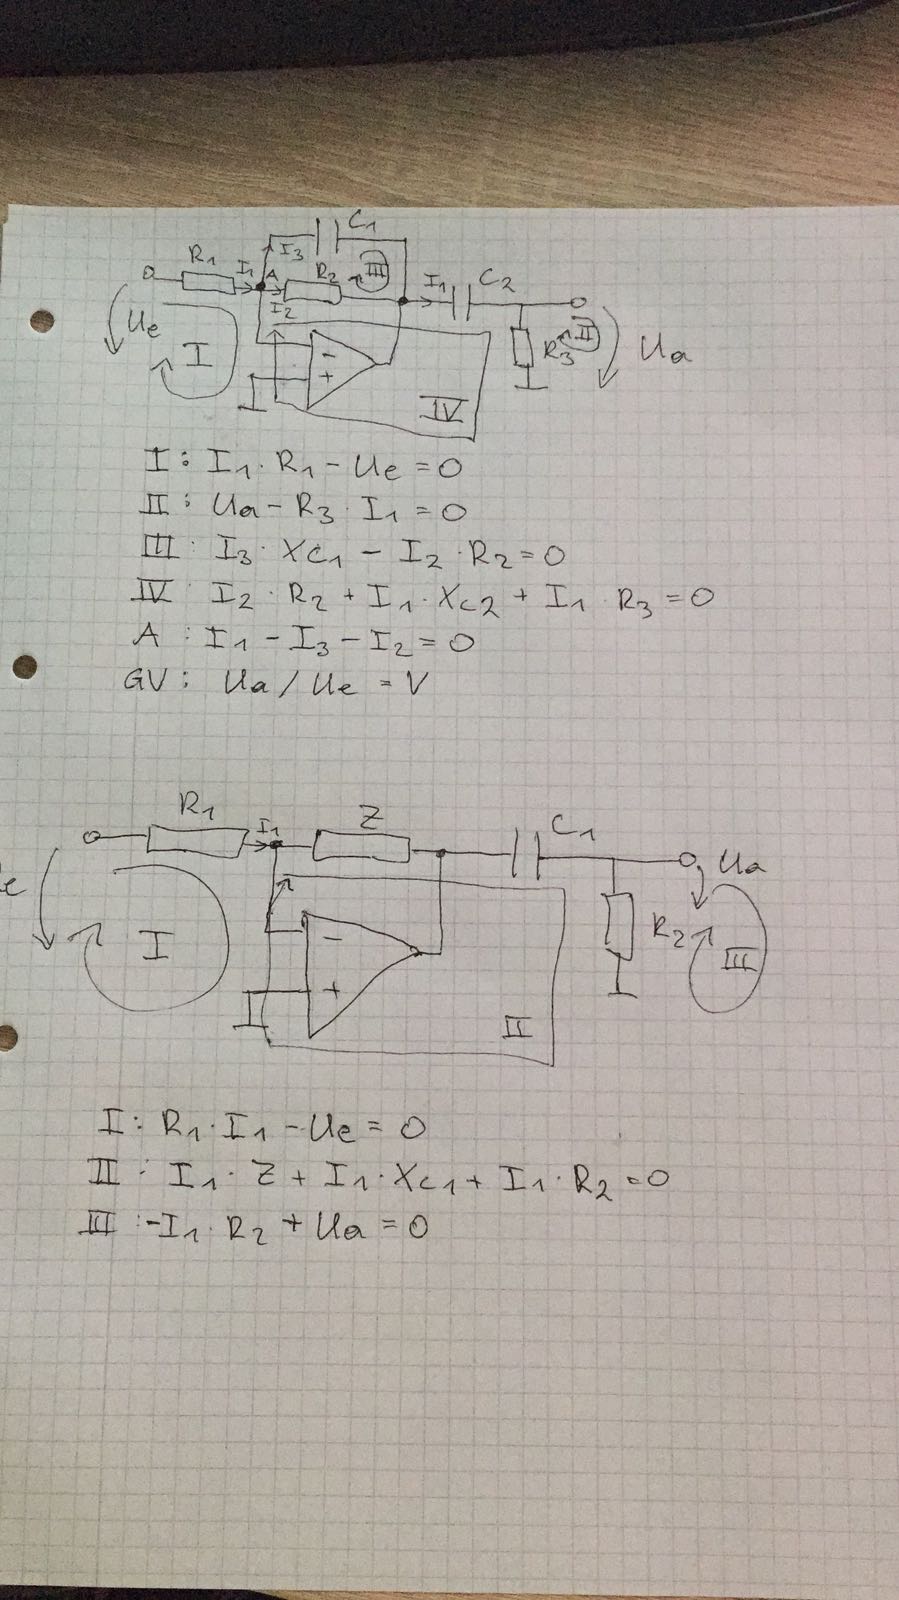 C1
I3
R1 I1 A R2 III I1 C2
I2
Ue I R3 II Ua
-
+
IV
I : I1 · R1 - Ue = 0
II : Ua - R3 · I1 = 0
III : I3 · XC1 - I2 · R2 = 0
IV I2 · R2 + I1 · XC2 + I1 · R3 = 0
A : I1 - I3 - I2 = 0
GV : Ua / Ue = V
R1 I1 Z C1
Ua
e I - R2 III
+
II
I : R1 · I1 - Ue = 0
II : I1 · Z + I1 · XC1 + I1 · R2 = 0
III : -I1 · R2 + Ua = 0